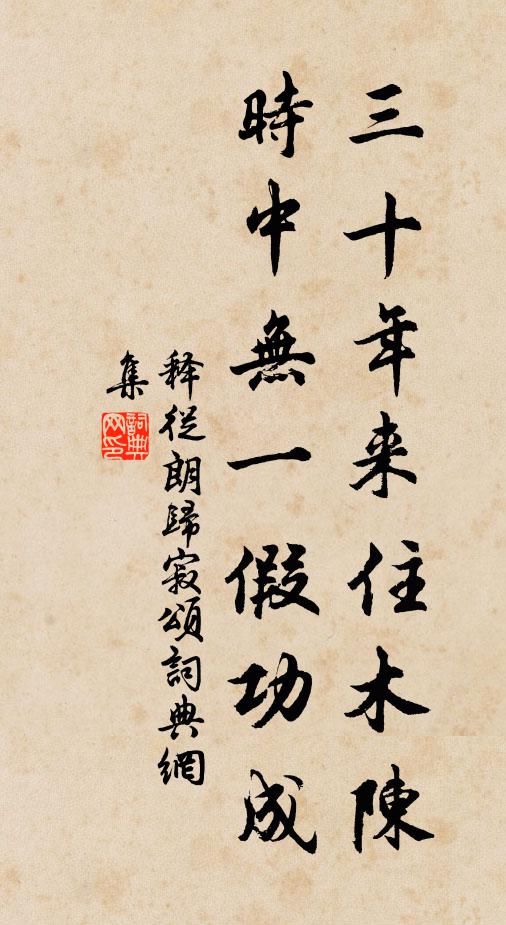 三十年来住木陳
時中無一假功成
释從朗歸寂頌詞典網
集
詞典
网印